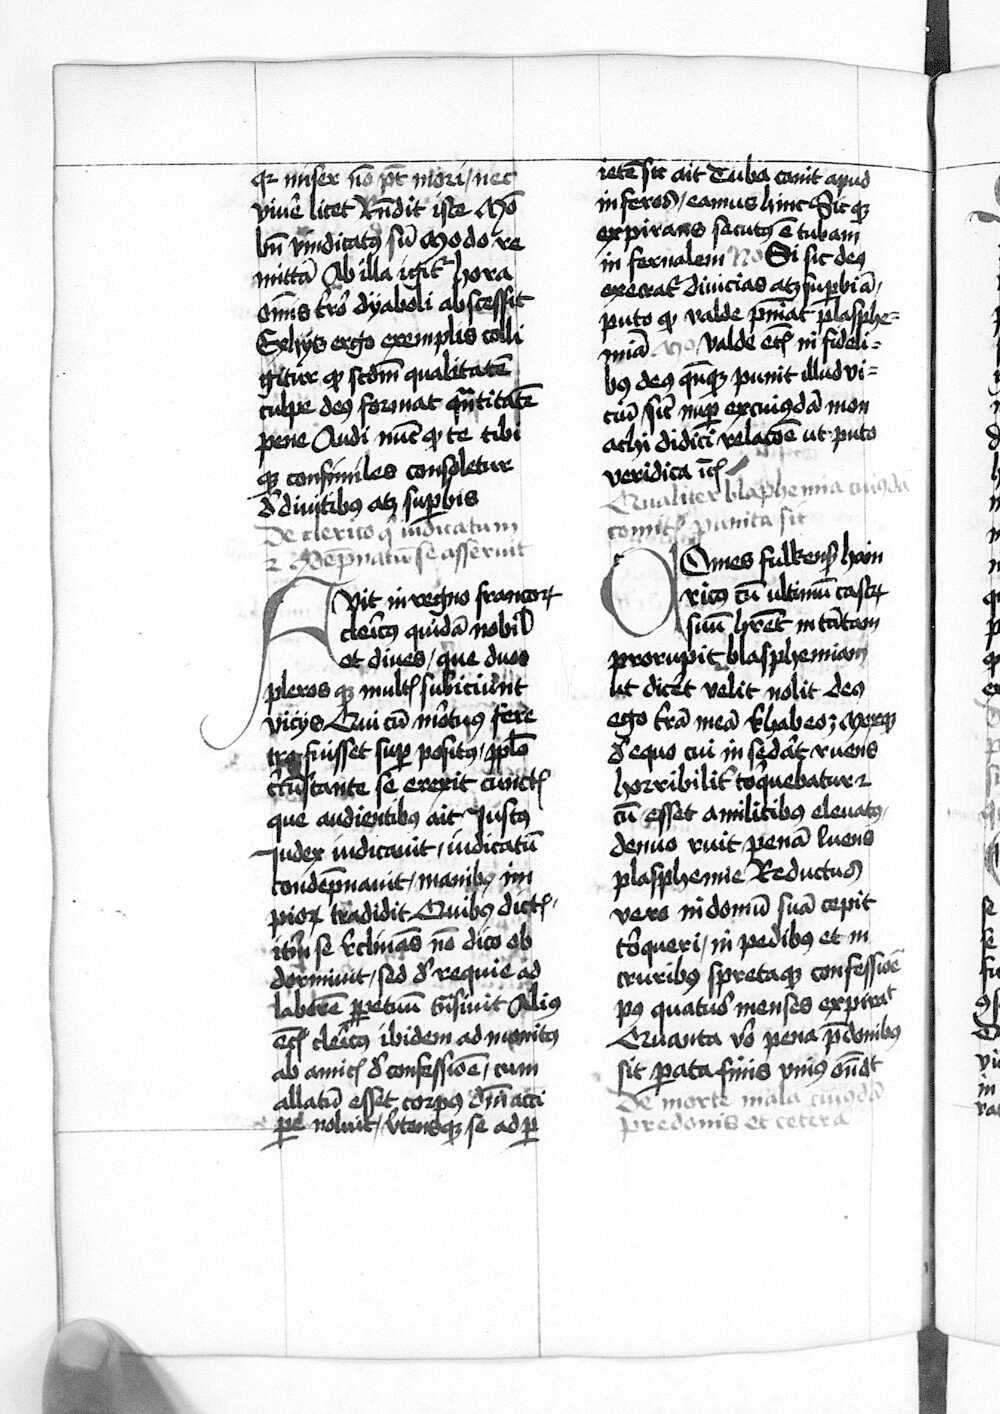 qz miser nō pt̄ mori / nec
viuē licet Rn̄dit iste Mō
bn̄ vindicatꝰ sū Modo re
mittā Ab illa igit̄ hora
om̄is t̄ror dyaboli abscessit
Ex hijs ergo exemplis colli
gitur qꝫ scdm̄ qualitatē
culpe deꝰ format qn̄titatē
pene Audi nūc qꝫ te tibi
qꝫ consimiles consoletur
d̄ diuitibꝰ atqꝫ suꝑbis
De clerico q̄ iudicatum
⁊ gdēpnatū se asseruit
Fvit in regno francorꝝ
cleīcꝰ quidā nobil̄
et diues / que duos
pleros qꝫ mult̄ subiciunt
vicijs Qui cū mōtuꝰ fere
tro fuisset suꝑ positꝰ / pplō
cc̄ūstante se erexit cunct̄
que audientibꝰ ait Justꝰ
Judex iudicauit / iudicatū
condēpnauit / manibꝰ im
pioꝝ tradidit Quibꝰ dict̄ /
itm̄ se r̄clinās nō dico ob
dormiuit / sed d̄ requie ad
laborē ꝑpetuū t̄nsiuit Aliꝰ
ec̄ cleīcꝰ ibidem ad monitꝰ
ab amic̄ d̄ confessiōe / cum
allatū esset corpꝰ dn̄i acci
ꝑe noluit / v̄tensqꝫ se ad ꝑ
ietē sic ait Tuba canit apud
inferos / eamus hinc Sic qꝫ
expirans secutꝰ ē tubam
in fernalem No Si sic deꝰ
execrat̄ diuicias atqꝫ suꝑbiā /
puto qꝫ valde pm̄iat plasphe=
miā Mo / valde ec̄ in fideli=
bꝰ deꝰ qn̄qꝫ punit illud vi=
ciū / sic̄ nuꝑ ex cuiꝰdā mon
achi didici relacōe ut puto
veridica ic̄
Qualiter blasphemia cuiꝰdā
comit̄ punita sit
COmes fulkensꝑ hain
ricꝰ cū ultimū castꝝ
suū hr̄et in tātam
prorupit blasphemiam
ut dicēt velit nolit deꝰ
ego t̄rā meā r̄habeo; Moxqꝫ
d̄ equo cui in sedāt ruens
horribilit̄ tōquebatur ⁊
cū esset a militibꝰ eleuatꝰ /
denuo ruit penā luens
plasphemie Reductus
vero in domū suā cepit
tōqueri / in pedibꝰ et in
cruribꝰ spretaqꝫ confessiōe
pꝰ quatuor menses expirat
Quanta vō pena p̄donibꝰ
sit ꝑata finis vniꝰ on̄dt
De morte mala cuiꝰdā
predonis et cetera